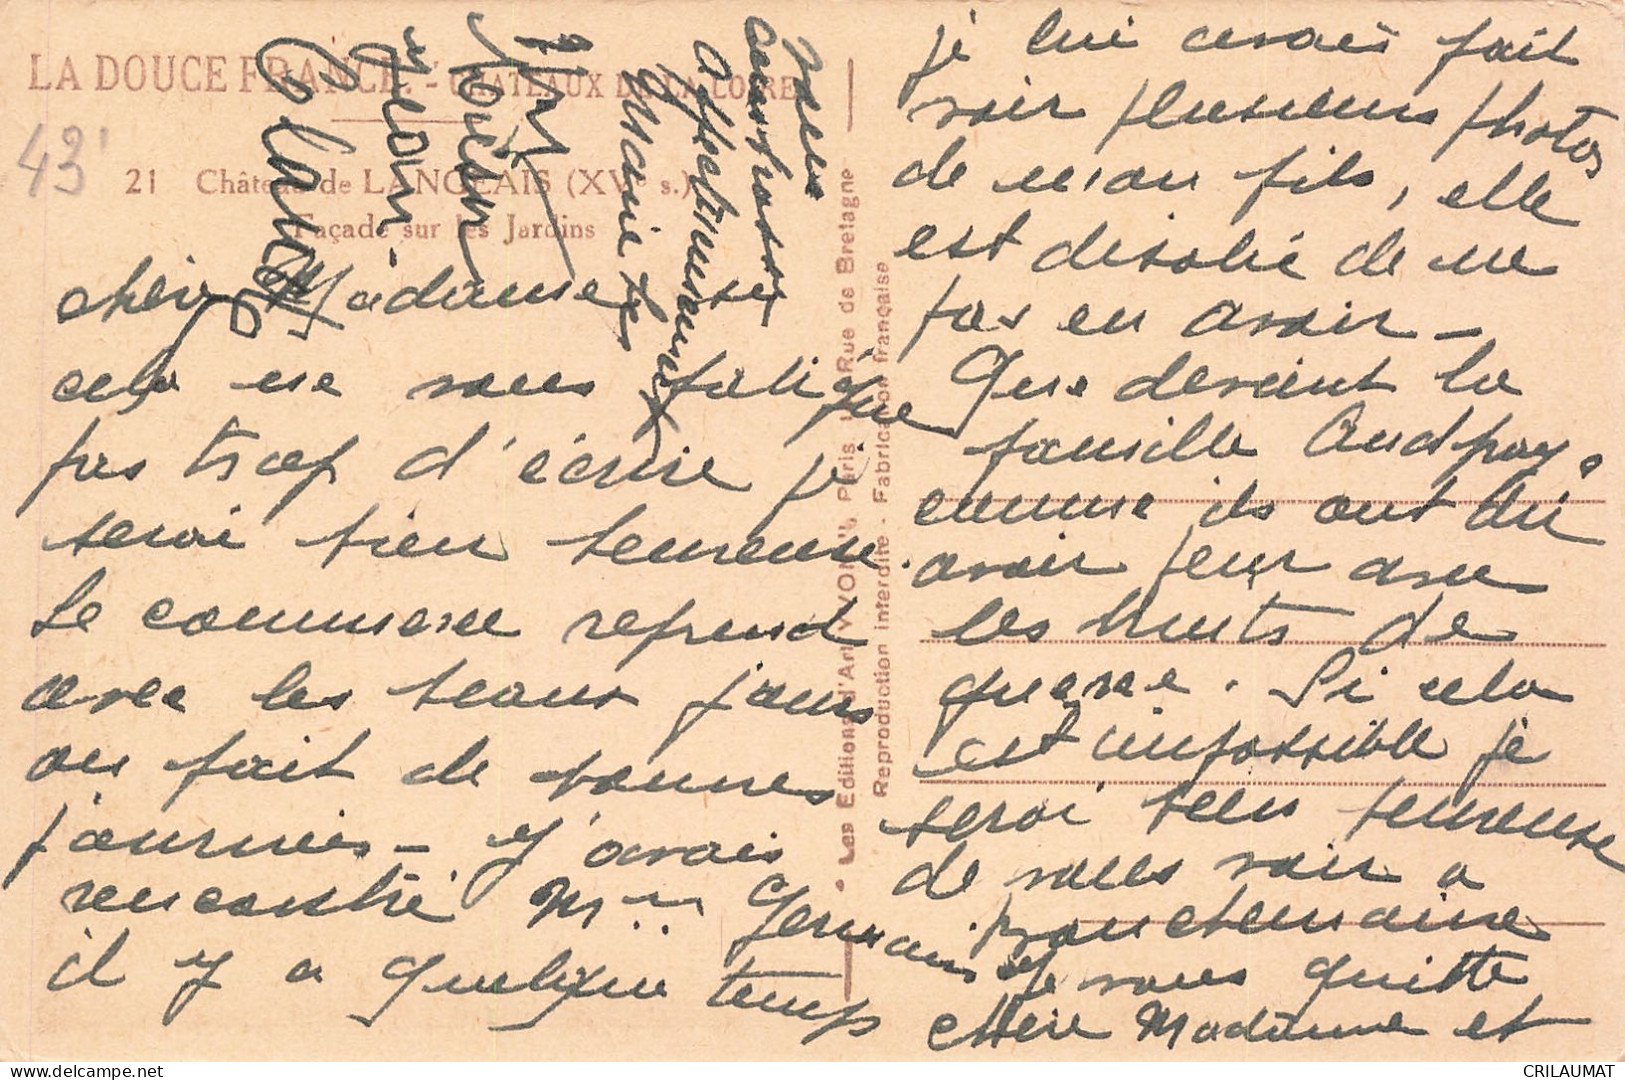 LA DOUCE FRANCE. - CHATEAUX DE LA LOIRE
43'
21 Château de LANGEAIS (XVe s.)
Façade sur les Jardins
chère Madame si
cela ne vous fatigue
pas trop d'écrire je
serai bien heureuse.
Le commerce reprend
avec les beaux jours
on fait de bonnes
journées - J'avais
rencontré Mme Germain
il y a quelque temps
je lui avais fait
voir plusieurs photos
de mon fils, elle
est désolée de ne
pas en avoir -
Que devient la
famille
comme ils ont dû
avoir peur avec
les bruits de
guerre. Si cela
est impossible je
serai bien heureuse
de vous voir a
Je vous quitte
chère Madame et
vous
affectueusement
Marie
Les Editions d'Art YVON, Paris, Rue de Bretagne
Reproduction interdite - Fabrication française
CRILAUMAT